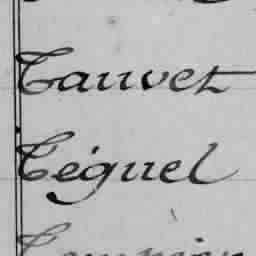 Tauvet
Téguel